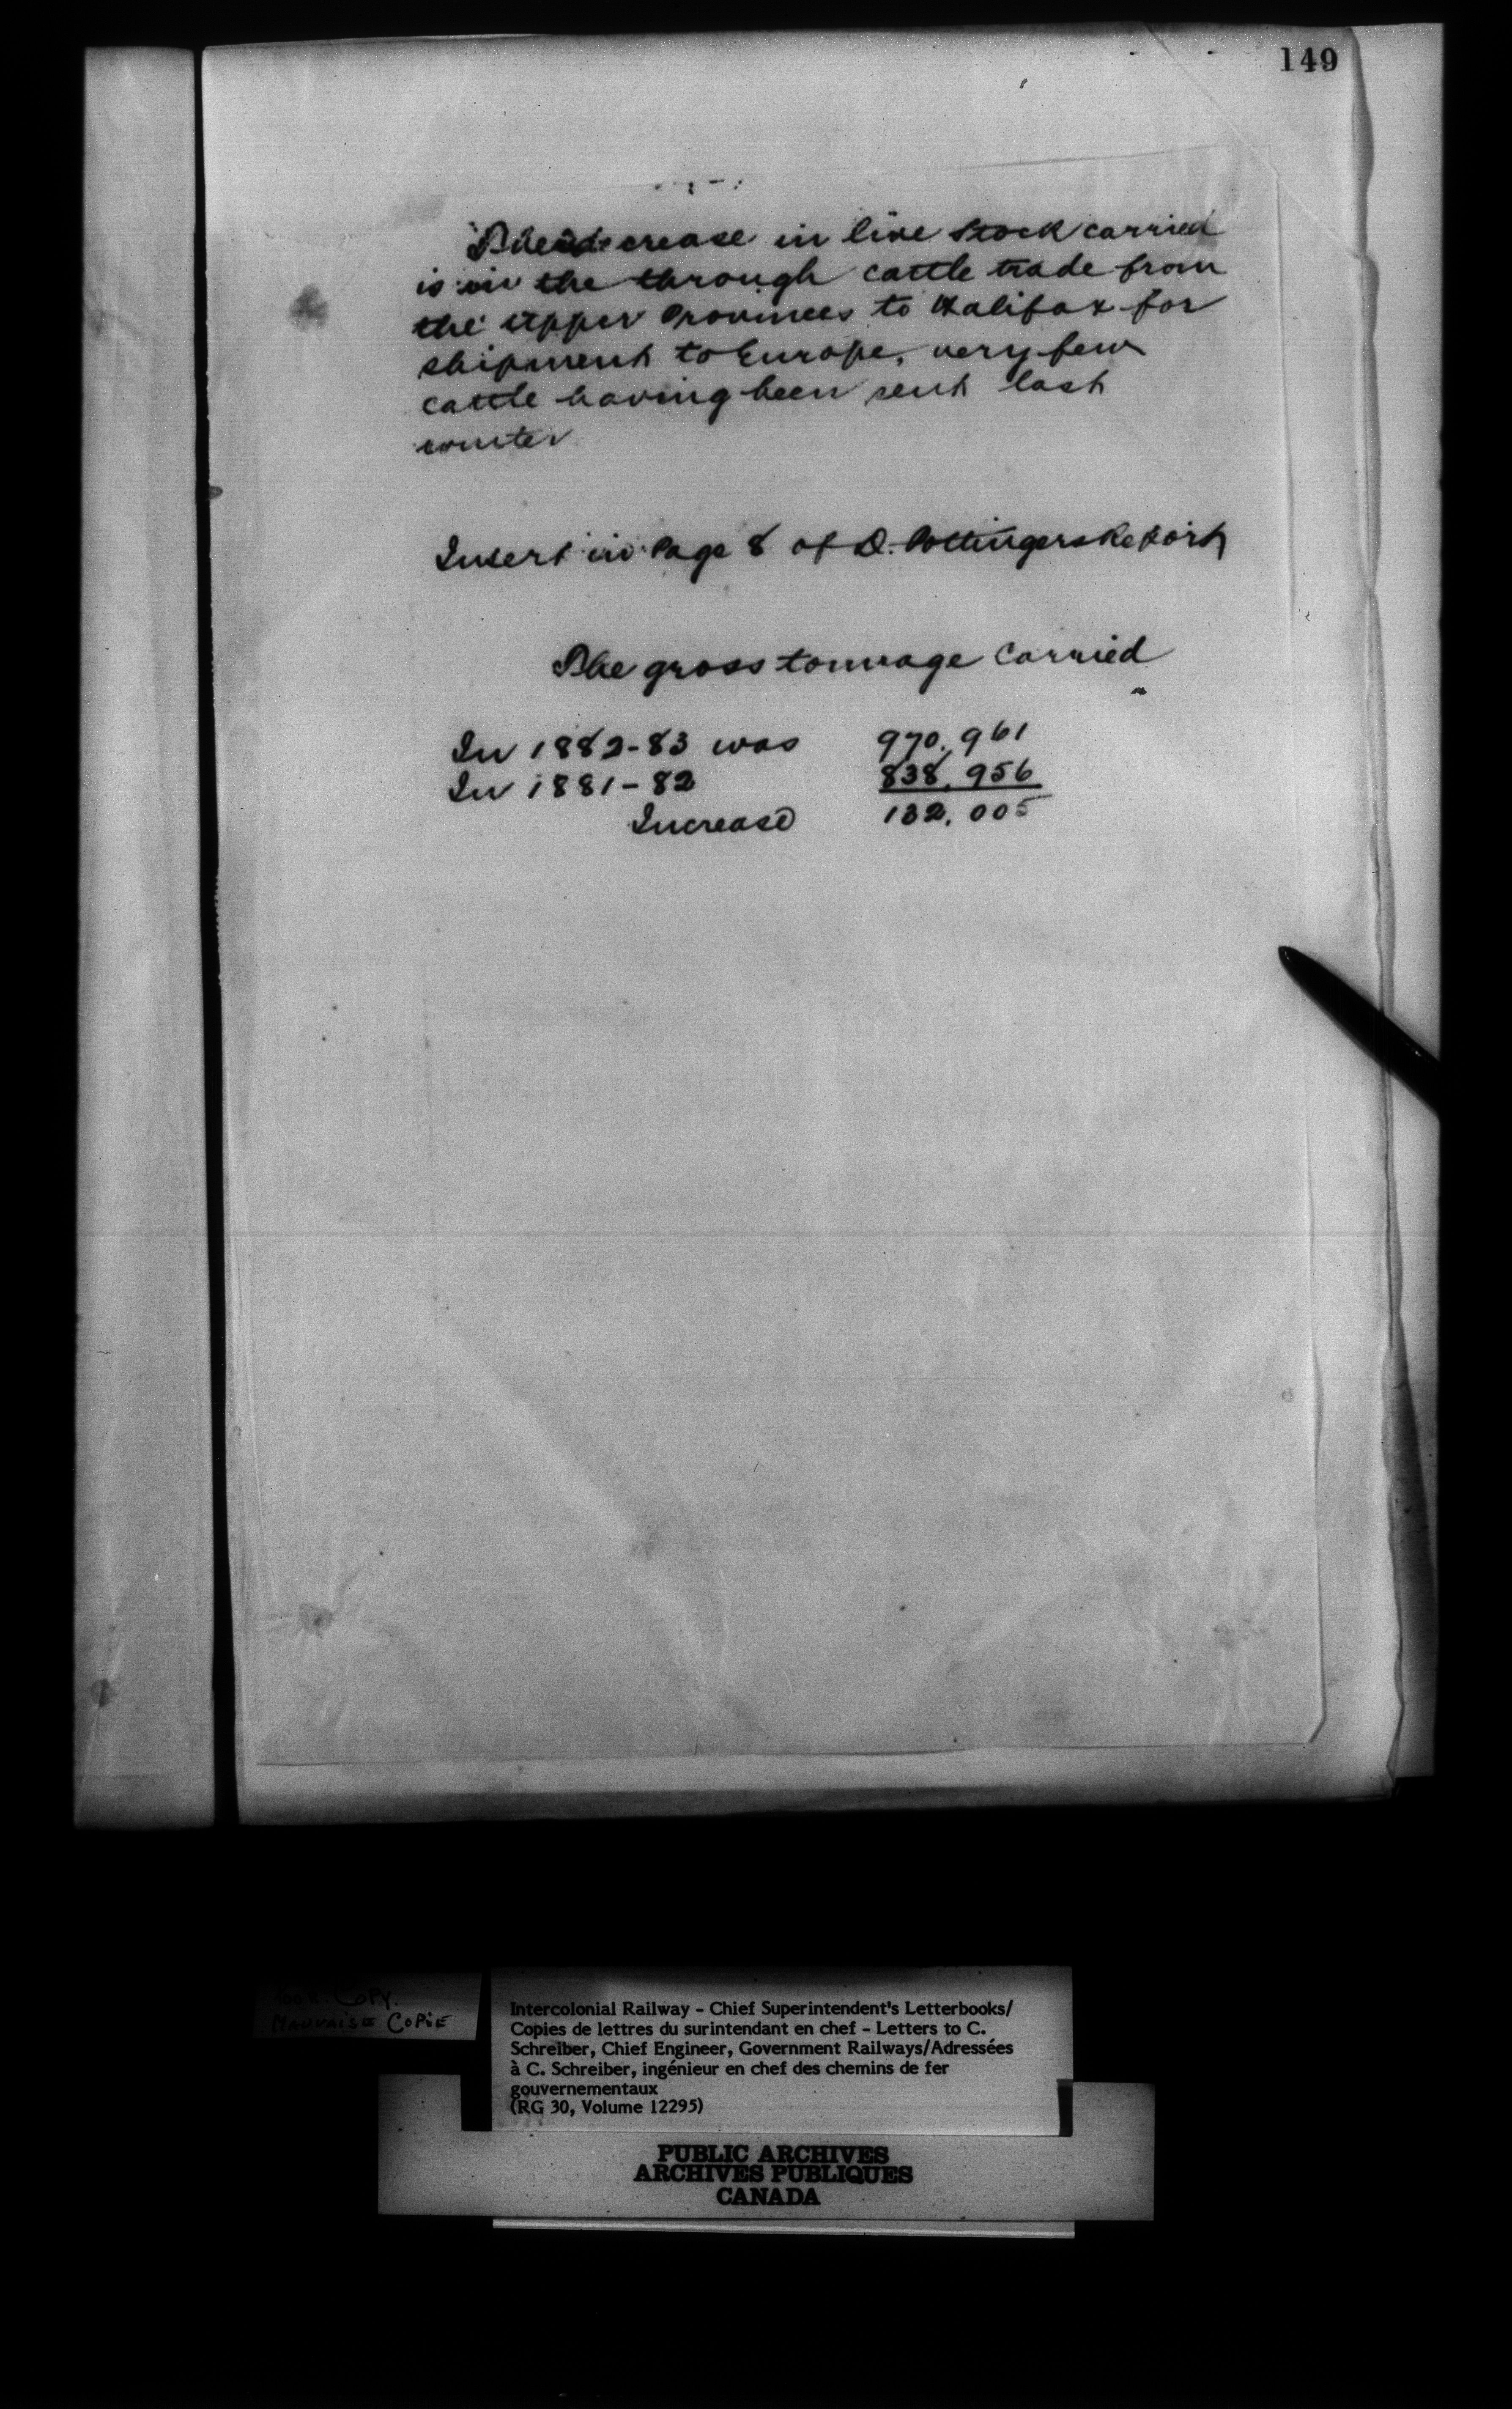 149
The decrease in live Stock carried
is in the through cattle trade from
the upper Provinces to Halifax for
shipment to Europe, very few
cattle having been sent last
winter
Insert in Page 8 of D. Pottingers Report
The gross tonnage carried
In 1882-83 was 970,961
In 1881-82 838,956
Increase 132,005
Copy.
MAUVAISE COPIE
Intercolonial Railway - Chief Superintendent's Letterbooks/
Copies de lettres du surintendant en chef - Letters to C.
Schreiber, Chief Engineer, Government Railways/Adressées
à C. Schreiber, ingénieur en chef des chemins de fer
gouvernementaux
(RG 30, Volume 12295)
PUBLIC ARCHIVES
ARCHIVES PUBLIQUES
CANADA